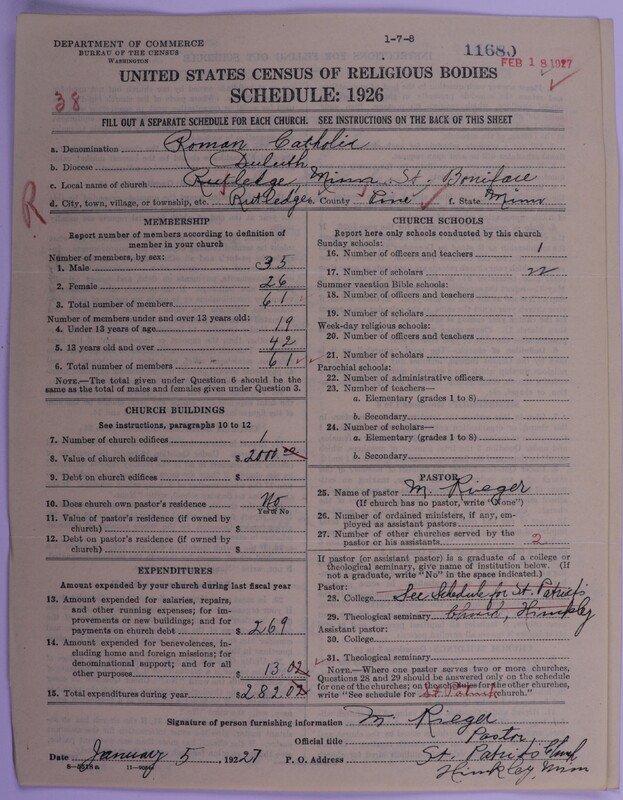 DEPARTMENT OF COMMERCE
BUREAU OF THE CENSUS
WASHINGTON
1-7-8
11680
FEB 18 1927
38
UNITED STATES CENSUS OF RELIGIOUS BODIES
SCHEDULE: 1926
FILL OUT A SEPARATE SCHEDULE FOR EACH CHURCH. SEE INSTRUCTIONS ON THE BACK OF THIS SHEET
a. Denomination Roman Catholic
b. Diocese Duluth
c. Local name of church Rutledge, Minn St. Boniface
d. City, town, village, or township, etc. Rutledge e. County Pine f. State Minn
R
MEMBERSHIP
Report number of members according to definition of
member in your church
Number of members, by sex:
1. Male 35
2. Female 26
3. Total number of members 61
Number of members under and over 13 years old:
4. Under 13 years of age 19
5. 13 years old and over 42
6. Total number of members 61
NOTE.—The total given under Question 6 should be
same as the total of males and females given under Question 3.
CHURCH BUILDINGS
See instructions, paragraphs 10 to 12
7. Number of church edifices 1
8. Value of church edifices $ 2000 00
9. Debt on church edifices $
10. Does church own pastor's residence No
Yes or No
11. Value of pastor's residence (if owned by
church) $
12. Debt on pastor's residence (if owned by
church) $
EXPENDITURES
Amount expended by your church during last fiscal year
13. Amount expended for salaries, repairs,
and other running expenses; for im-
provements or new buildings; and for
payments on church debt $ 269
14. Amount expended for benevolences, in-
cluding home and foreign missions; for
denominational support; and for all
other purposes 13 02
15. Total expenditures during year $ 282 02
CHURCH SCHOOLS
Report here only schools conducted by this church
Sunday schools:
16. Number of officers and teachers 1
17. Number of scholars
Summer vacation Bible schools:
18. Number of officers and teachers
19. Number of scholars
Week-day religious schools:
20. Number of officers and teachers
21. Number of scholars
Parochial schools:
22. Number of administrative officers
23. Number of teachers—
a. Elementary (grades 1 to 8)
b. Secondary
24. Number of scholars—
a. Elementary (grades 1 to 8)
b. Secondary
PASTOR
25. Name of pastor M. Rieger
(If church has no pastor, write "None")
26. Number of ordained ministers, if any, em-
ployed as assistant pastors
27. Number of other churches served by the
pastor or his assistants 2
If pastor (or assistant pastor) is a graduate of a college or
theological seminary, give name of institution below. (If
not a graduate, write "No" in the space indicated.)
Pastor:
28. College See Schedule for St. Patrick's
29. Theological seminary Church, Hinckley
Assistant pastor:
30. College
31. Theological seminary
NOTE.—Where one pastor serves two or more churches,
Questions 28 and 29 should be answered only on the schedule
for one of the churches; on the schedules for the other churches,
write "See schedule for St Patrick church."
Signature of person furnishing information M. Rieger
Official title Pastor,
Date January 5, 1927 P. O. Address St. Patriks Church
Hinkley, Minn